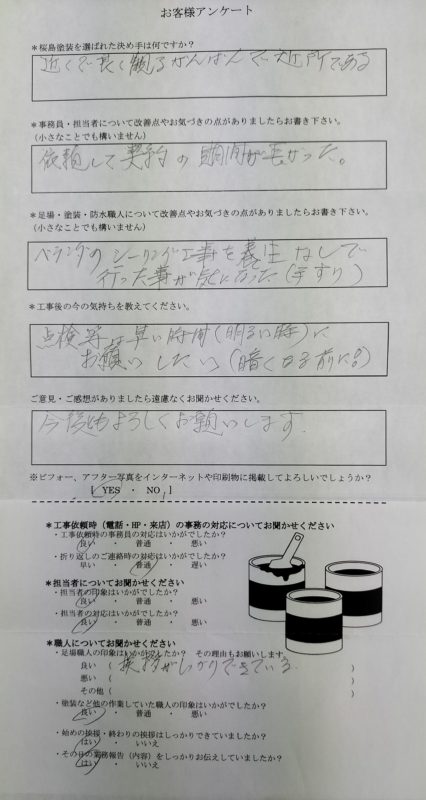 お客様アンケート
＊桜島塗装を選ばれた決め手は何ですか？
近くで良く観るかんばんで近所である
＊事務員・担当者について改善点やお気づきの点がありましたらお書き下さい。
（小さなことでも構いません）
依頼して契約の期間が長かった。
＊足場・塗装・防水職人について改善点やお気づきの点がありましたらお書き下さい。
（小さなことでも構いません）
ベランダのシーリング工事を養生なしで
行った事が気になった（手すり）
＊工事後の今の気持ちを教えてください。
点検等は早い時間（明るい時）に
お願いしたい（暗くなる前に。）
ご意見・ご感想がありましたら遠慮なくお聞かせください。
今後ともよろしくお願いします。
※ビフォー、アフター写真をインターネットや印刷物に掲載してよろしいでしょうか？
［ YES ・ NO ］
＊工事依頼時（電話・HP・来店）の事務の対応についてお聞かせください
・工事依頼時の事務員の対応はいかがでしたか？
良い ・ 普通 ・ 悪い
・折り返しのご連絡時の対応はいかがでしたか？
早い ・ 普通 ・ 遅い
＊担当者についてお聞かせください
・担当者の印象はいかがでしたか？
良い ・ 普通 ・ 悪い
・担当者の対応はいかがでしたか？
良い ・ 普通 ・ 悪い
＊職人についてお聞かせください
・足場職人の印象はいかがでしたか？ その理由もお願いします
良い （ 挨拶がしっかりできている。 ）
悪い （ ）
その他（ ）
・塗装など他の作業していた職人の印象はいかがでしたか？
良い ・ 普通 ・ 悪い
・始めの挨拶・終わりの挨拶はしっかりできていましたか？
はい ・ いいえ
・その日の業務報告（内容）をしっかりお伝えしていましたか？
はい ・ いいえ